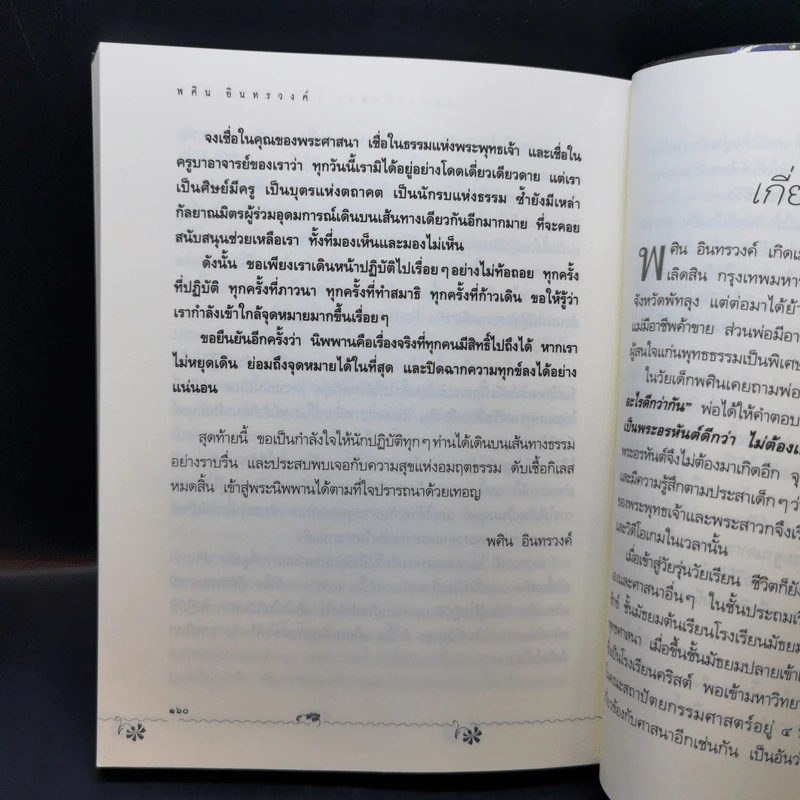 พศิน อินทรวงศ์
จงเชื่อในคุณของพระศาสนา เชื่อในธรรมแห่งพระพุทธเจ้า และเชื่อใน
ครูบาอาจารย์ของเราว่า ทุกวันนี้เรามิได้อยู่อย่างโดดเดี่ยวเดียวดาย แต่เรา
เป็นศิษย์มีครู เป็นบุตรแห่งตถาคต เป็นนักรบแห่งธรรม ซ้ำยังมีเหล่า
กัลยาณมิตรผู้ร่วมอุดมการณ์เดินบนเส้นทางเดียวกันอีกมากมาย ที่จะคอย
สนับสนุนช่วยเหลือเรา ทั้งที่มองเห็นและมองไม่เห็น
ดังนั้น ขอเพียงเราเดินหน้าปฏิบัติไปเรื่อยๆอย่างไม่ท้อถอย ทุกครั้ง
ที่ปฏิบัติ ทุกครั้งที่ภาวนา ทุกครั้งที่ทำสมาธิ ทุกครั้งที่ก้าวเดิน ขอให้รู้ว่า
เรากำลังเข้าใกล้จุดหมายมากขึ้นเรื่อยๆ
ขอยืนยันอีกครั้งว่า นิพพานคือเรื่องจริงที่ทุกคนมีสิทธิ์ไปถึงได้ หากเรา
ไม่หยุดเดิน ย่อมถึงจุดหมายได้ในที่สุด และปิดฉากความทุกข์ลงได้อย่าง
แน่นอน
สุดท้ายนี้ ขอเป็นกำลังใจให้นักปฏิบัติทุกๆท่านได้เดินบนเส้นทางธรรม
อย่างราบรื่น และประสบพบเจอกับความสุขแห่งอมฤตธรรม ดับเชื้อกิเลส
หมดสิ้น เข้าสู่พระนิพพานได้ตามที่ใจปรารถนาด้วยเทอญ
พศิน อินทรวงศ์
๑๖๐
เกี่ย
พศิน อินทรวงศ์ เกิดเ
เลิดสิน กรุงเทพมหา
จังหวัดพัทลุง แต่ต่อมาได้ย้า
แม่มีอาชีพค้าขาย ส่วนพ่อมีอา
ผู้สนใจแก่นพุทธธรรมเป็นพิเศษ
ในวัยเด็กพศินเคยถามพ่อ
อะไรดีกว่ากัน” พ่อได้ให้คำตอบ
เป็นพระอรหันต์ดีกว่า ไม่ต้อง
พระอรหันต์จึงไม่ต้องมาเกิดอีก จุ
และมีความรู้สึกตามประสาเด็กๆว่
ของพระพุทธเจ้าและพระสาวกจึงเ
และวิดีโอเกมในเวลานั้น
เมื่อเข้าสู่วัยรุ่นวัยเรียน ชีวิตก็ยัง
และศาสนาอื่นๆ ในชั้นประถม
ชั้นมัธยมต้นเรียนโรงเรียนมัธยม
ศาสนา เมื่อขึ้นชั้นมัธยมปลายเข้า
เป็นโรงเรียนคริสต์ พอเข้ามหาวิทยา
คณะสถาปัตยกรรมศาสตร์อยู่ ๔ ปี
กับศาสนาอีกเช่นกัน เป็นอันว่า